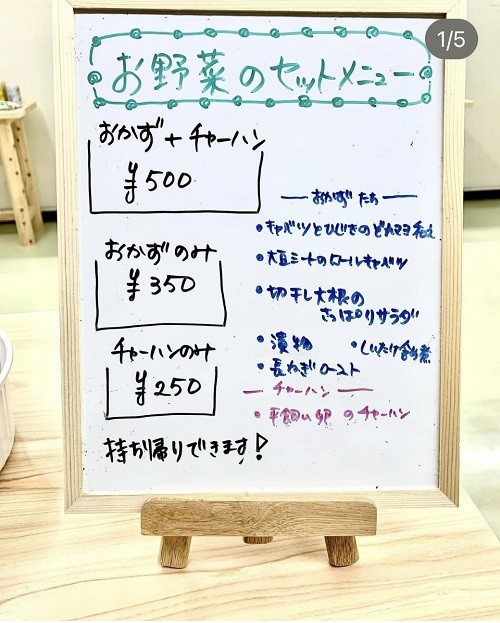 1/5
お野菜のセットメニュー
おかず+チャーハン
¥500
おかずのみ
¥350
チャーハンのみ
¥250
持ち帰りできます!
おかずたち
・キャベツとひじきのごまマヨ和え
・大豆ミートのロールキャベツ
・切干し大根の
さっぱりサラダ
・漬物 ・しいたけ含め煮
・長ねぎロースト
チャーハン
・平飼い卵のチャーハン